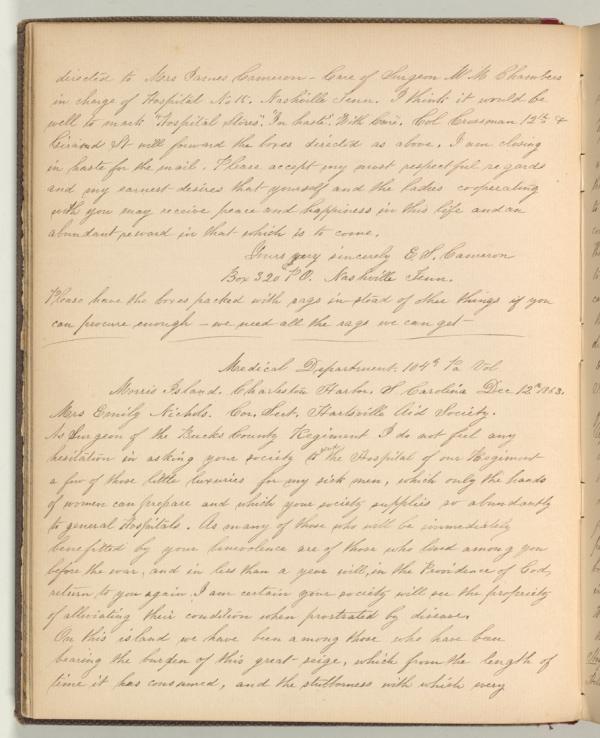 directed to Mrs James Cameron - Care of Surgeon W M Chambers
in charge of Hospital No 15. Nashville Tenn. I think it would be
well to mark "Hospital Stores". "In haste". With Care. Col Crossman 12th &
Girard St will forward the boxes directed as above. I am closing
in haste for the mail. Please accept my most respectful regards
and my earnest desires that yourself and the ladies cooperating
with you may receive peace and happiness in this life and an
abundant reward in that which is to come.
Yours very sincerely E. S. Cameron
Box 320 P.O. Nashville Tenn.
Please have the boxes packed with rags in stead of other things if you
can procure enough - we need all the rags we can get -
Medical Department. 104th Pa Vol
Morris Island. Charleston Harbor. S Carolina Dec 12th 1863.
Mrs Emily Nichols. Cor. Sect. Hartsville Aid Society.
As Surgeon of the Bucks County Regiment I do not feel any
hesitation in asking your society to the Hospital of our Regiment
a few of those little luxuries for my sick men, which only the hands
of women can prepare and which your society supplies so abundantly
to general Hospitals. As many of those who will be immediately
benefitted by your benevolence are of those who lived among you
before the war, and in less than a year will, in the Providence of God,
return to you again I am certain your society will see the propriety
of alleviating their condition when prostrated by disease.
On this island we have been among those who have been
bearing the burden of this great seige, which from the length of
time it has consumed, and the stubborness with which every